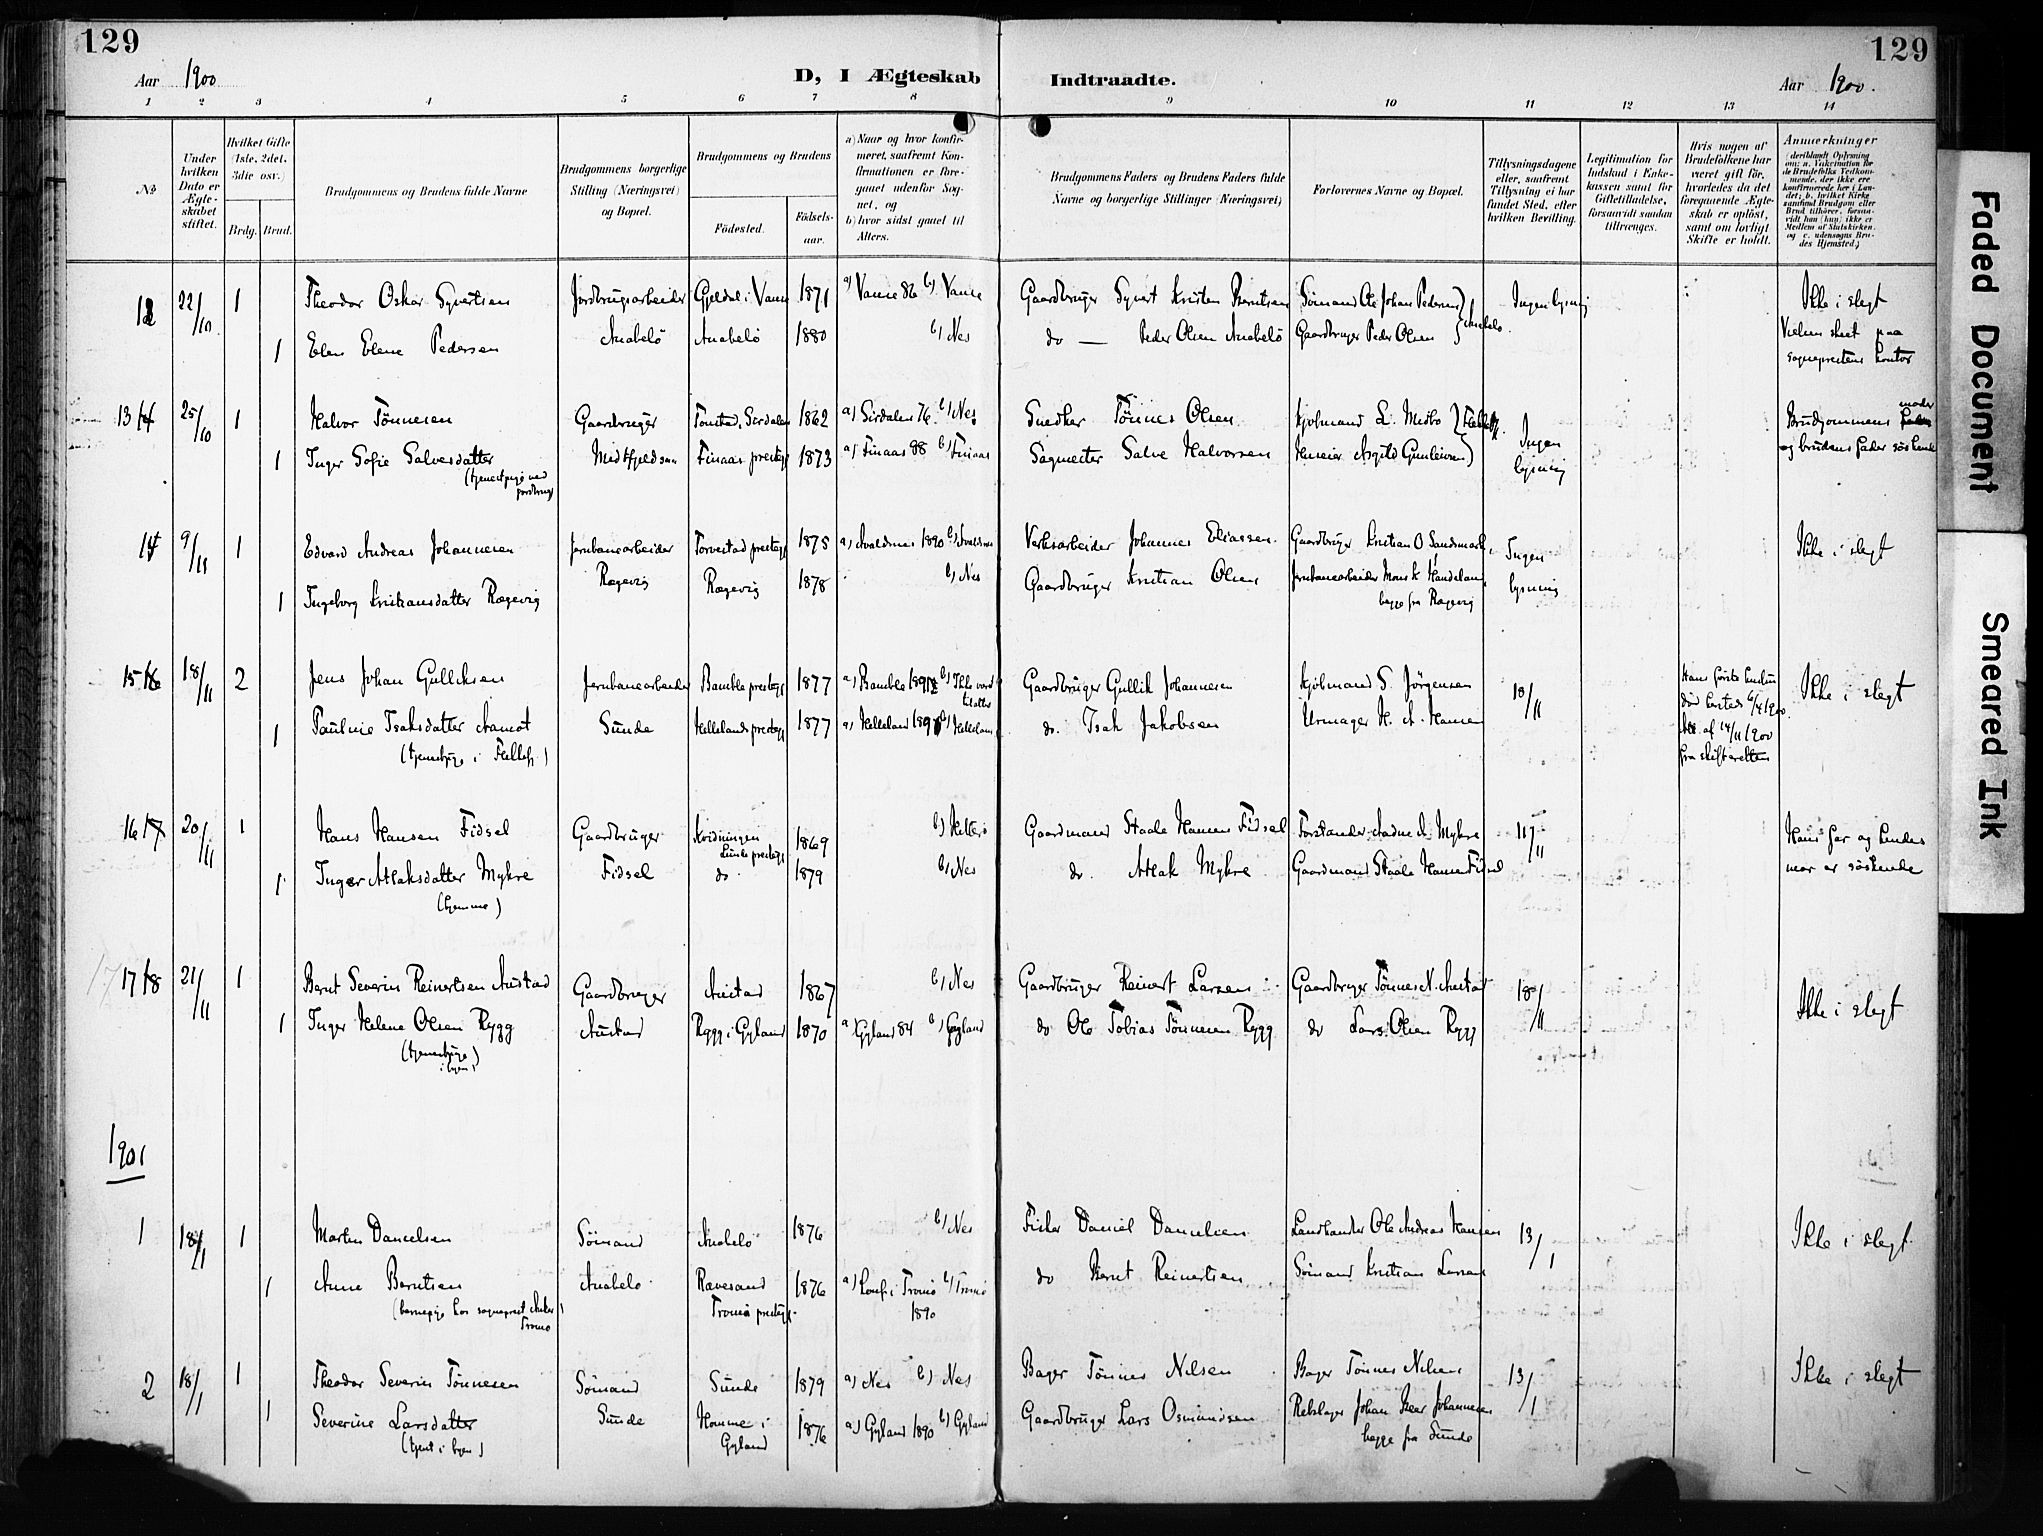 129
129
Aar 1900
D, I Ægteskab Indtraadte.
Aar 1900.
1 2 3 4 5 6 7 8 9 10 11 12 13 14
No
Under hvilken Dato er Ægteskabet stiftet.
Hvilket Gifte (1ste, 2det, 3die osv.)
Brdg. Brud.
Brudgommens og Brudens fulde Navne
Brudgommens borgerlige Stilling (Næringsvei) og Bopæl.
Brudgommens og Brudens
Födested.
Födselsaar.
a) Naar og hvor konfirmeret, saafremt Konfirmationen er foregaaet udenfor Sognet, og
b) hvor sidst gaaet til Alters.
Brudgommens Faders og Brudens Faders fulde Navne og borgerlige Stillinger (Næringsvei)
Forlovernes Navne og Bopæl.
Tillysningsdagene eller, saafremt Tillysning ei har fundet Sted, efter hvilken Bevilling.
Legitimation for Indskud i Enkekassen samt for Giftetilladelse, forsaavidt saadan tiltrænges.
Hvis nogen af Brudefolkene har været gift för, hvorledes da det foregaaende Ægteskab er oplöst, samt om lovligt Skifte er holdt.
Anmærkninger
12 22/10 1 Theodor Oskar Syvertsen Jordbrugsarbeider Gjeldal i Vanse 1871 a) Vanse 86 b) Vanse Gaardbruger Syvert Kristen Berntsen Sömand Ole Johan Pedersen Ingen lysning Ikke i slegt
1 Elen Elene Pedersen Anabelö Anabelö 1880 b) Nes do — Peder Olsen Anabelö Gaardbruger Peder Olsen Anabelö Vielsen skeet paa
sogneprestens kontor
13 25/10 1 Halvor Tönnesen Gaardbruger Tonstad, Sirdalen 1862 a) Sirdalen 76 b) Nes Snedker Tönnes Olsen Kjöbmand L. Medbö Ingen Brudgommens moder
1 Inger Sofie Salvesdatter Finaas prestegj 1873 a) Finaas 88 b) Finaas Sagmester Salve Halvorsen lysning og brudens fader söskende
14 9/11 1 Edvard Andreas Johannesen Jernbanearbeider Torvestad prestegj 1875 a) Avaldsnes 1890 b) Avaldsnes Verksarbeider Johannes Eliassen Gaardbruger Kristian O Sandsmark Ingen Ikke i slegt
1 Ingeborg Kristiansdatter Rægevig Rægevig Rægevig 1878 b) Nes Gaardbruger Kristian Olsen Jernbanearbeider Mons K Handeland lysning
begge fra Rægevig
15 18/11 2 Jens Johan Gulliksen Jernbanearbeider Bamble prestegj 1877 a) Bamble b) Ikke været til alters Gaardbruger Gullik Johannesen Kjöbmand S. Jörgensen 18/11 Hans förste hustru Ikke i slegt
1 Pauline Isaksdatter Aamot Sunde Hellelands prestegj 1877 a) Helleland b) Helleland do. Isak Jakobsen Urmager H. A. Hansen
Att. af 14/11 1900
fra skifteretten
16 20/11 1 Hans Hansen Fidsel Gaardbruger Kvidningen 1869 b) Hitterö Gaardmand Staale Hansen Fidsel Forstander Aadne A. Mykre 11/11 Hans far og hendes
Lunde prestegj
1 Inger Atlaksdatter Mykre Fidsel do 1879 b) Nes do. Atlak Mykre Gaardmand Staale Hansen Fidsel mor er söskende
(hjemme)
17 21/11 1 Bernt Severin Reinertsen Austad Gaardbruger Austad 1867 b) Nes Gaardbruger Reinert Larsen Gaardbruger Tönnes N. Austad 18/11 Ikke i slegt
1 Inger Helene Olsen Rygg Austad Rygg i Gyland 1870 a) Gyland 84 b) Gyland do Ole Tobias Tönnesen Rygg do Lars Olsen Rygg
(tjenestepige
i byen)
1901
1 18/1 1 Martin Danielsen Sömand Anabelö 1876 b) Nes Fisker Daniel Danielsen Landhandler Ole Andreas Hansen 13/1 Ikke i slegt
1 Anne Berntsen Anabelö Ravesand 1876 a) konf. i Tromö b) Tromö do Bernt Reinertsen Sömand Kristian Larsen
(barnepige hos sogneprest
Tromö
Tromö prestegj. 1890
2 18/1 1 Theodor Severin Tönnesen Sömand Sunde 1879 a) Nes b) Nes Bager Tönnes Nilsen Bager Tönnes Nilsen 13/1 Ikke i slegt
1 Severine Larsdatter Sunde Homme i 1876 a) Gyland 1890 b) Gyland Gaardbruger Lars Osmundsen Rebslager Johan Johannesen
(tjent i byen) Gyland begge fra Sunde
Faded Document
Smeared Ink